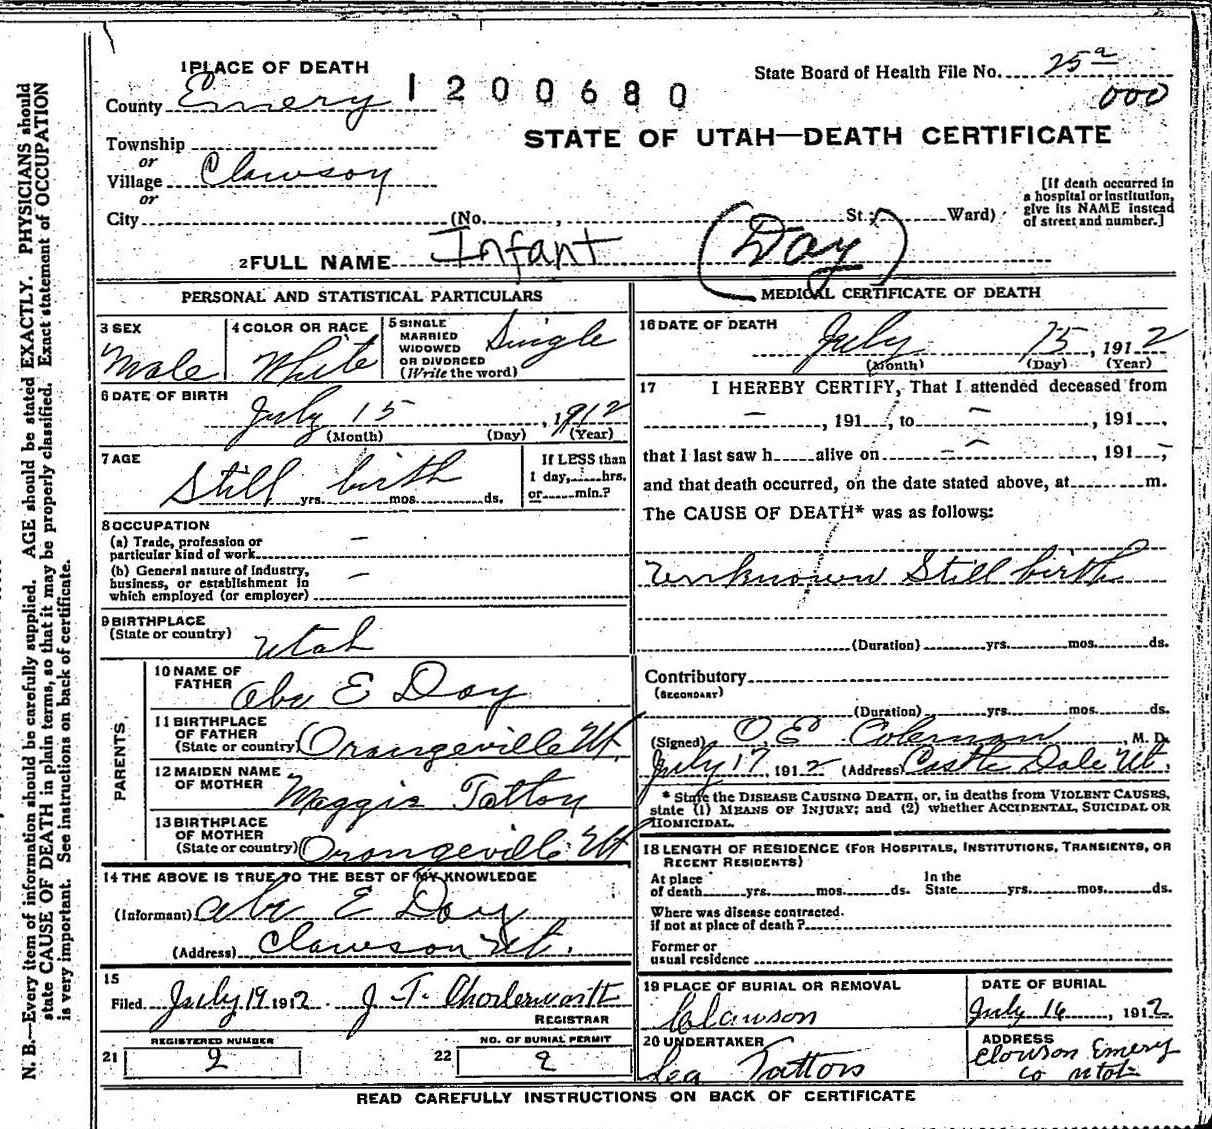 1 PLACE OF DEATH
County Emery
1200680
State Board of Health File No. 25 a
000
STATE OF UTAH—DEATH CERTIFICATE
Township
or
Village Clawson
or
City (No. , St.; Ward)
[If death occurred in a hospital or institution, give its NAME instead of street and number.]
2 FULL NAME Infant (Day)
PERSONAL AND STATISTICAL PARTICULARS
3 SEX
Male
4 COLOR OR RACE
White
5 SINGLE
MARRIED
WIDOWED
OR DIVORCED
(Write the word)
Single
6 DATE OF BIRTH
July 15, 1912
(Month) (Day) (Year)
7 AGE
Still birth
yrs. mos. ds.
If LESS than
1 day, hrs.
or min.?
8 OCCUPATION
(a) Trade, profession or
particular kind of work —
(b) General nature of industry,
business, or establishment in
which employed (or employer) —
9 BIRTHPLACE
(State or country) Utah
PARENTS
10 NAME OF
FATHER Abe E Day
11 BIRTHPLACE
OF FATHER
(State or country) Orangeville Ut.
12 MAIDEN NAME
OF MOTHER Maggie Tatton
13 BIRTHPLACE
OF MOTHER
(State or country) Orangeville Ut
14 THE ABOVE IS TRUE TO THE BEST OF MY KNOWLEDGE
(Informant) Abe E Day
(Address) Clawson Ut.
15
Filed July 19 1912 J. T. Charlesworth
REGISTRAR
21 REGISTERED NUMBER
2
22 NO. OF BURIAL PERMIT
2
MEDICAL CERTIFICATE OF DEATH
16 DATE OF DEATH
July 15, 1912
(Month) (Day) (Year)
17 I HEREBY CERTIFY, That I attended deceased from
—, 191 , to —, 191 ,
that I last saw h alive on —, 191 ,
and that death occurred, on the date stated above, at m.
The CAUSE OF DEATH* was as follows:
Unknown Still birth
(Duration) yrs. mos. ds.
Contributory
(SECONDARY)
(Duration) yrs. mos. ds.
(Signed) O E Coleman, M. D.
July 17, 1912 (Address) Castle Dale Ut.
* State the DISEASE CAUSING DEATH, or, in deaths from VIOLENT CAUSES,
state (1) MEANS OF INJURY; and (2) whether ACCIDENTAL, SUICIDAL OR
HOMICIDAL.
18 LENGTH OF RESIDENCE (FOR HOSPITALS, INSTITUTIONS, TRANSIENTS, OR
RECENT RESIDENTS)
At place
of death yrs. mos. ds.
In the
State yrs. mos. ds.
Where was disease contracted.
if not at place of death?
Former or
usual residence
19 PLACE OF BURIAL OR REMOVAL
Clawson
DATE OF BURIAL
July 16, 1912
20 UNDERTAKER
Tatton
ADDRESS
Clawson Emery
Co Utah
READ CAREFULLY INSTRUCTIONS ON BACK OF CERTIFICATE
N. B.—Every item of information should be carefully supplied. AGE should be stated EXACTLY. PHYSICIANS should
state CAUSE OF DEATH in plain terms, so that it may be properly classified. Exact statement of OCCUPATION
is very important. See instructions on back of certificate.